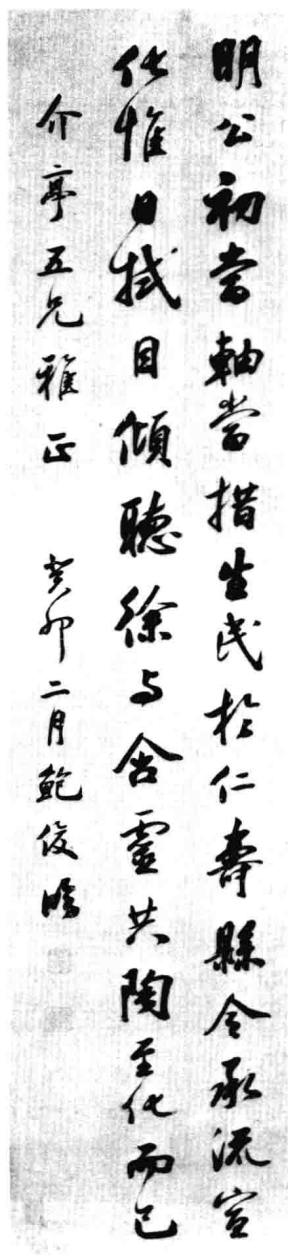 明公初當軸當措生民於仁壽縣令承流宣
化惟日拭目傾聽徐与含靈共陶至化而已
介亭五兄雅正 癸卯二月鮑俊